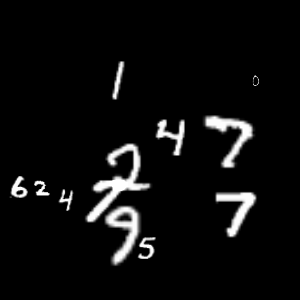 1
0
4 7
2
6 2 4 7
9 5